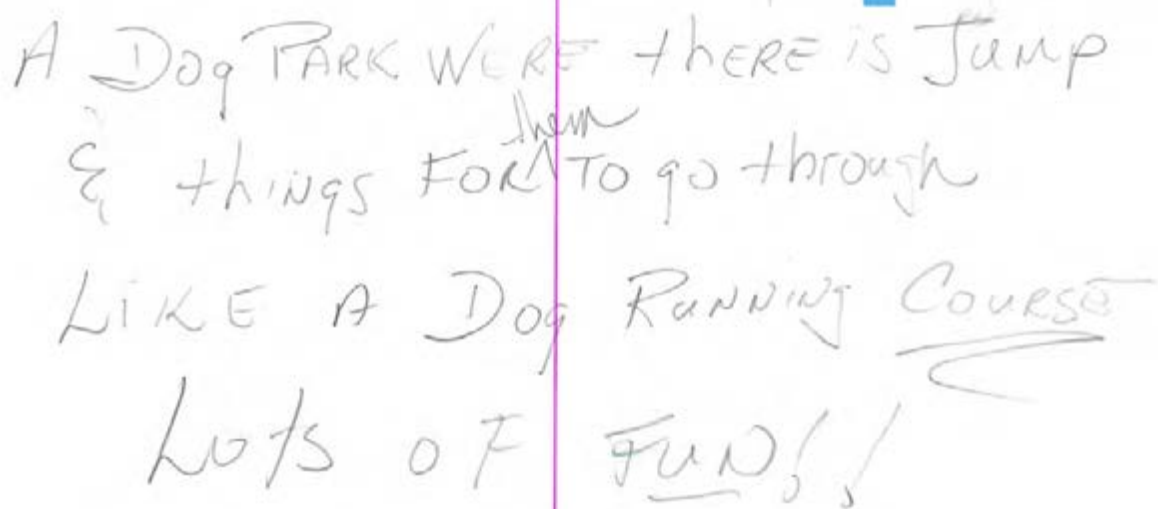 A Dog PARK WERE thERE is Jump
& things FOR them TO go through
LiKE A Dog RuNNiNg CouRSE
Lots OF FuN!!